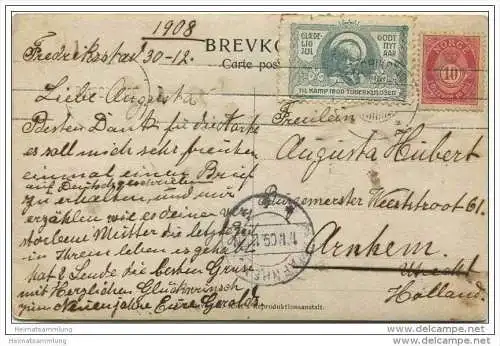 1908
Fredriksstad 30-12.
BREVKO
Carte pos
GLÆDELIG JUL GODT NYT AAR
TIL KAMP MOD TUBERKULOSEN
NORGE
10
Liebe Augusta
Besten Dank für die Karte
es soll mich sehr freuen
einmal einen Brief
auf Deutsch geschrieben
zu erhalten, und mir
erzählen wie es deiner ver
storbene Mutter die letzte Zeit
in Ihrem leben es gega
hat 2 Sende die besten Grüse
mit Herzlichen Glückwünsch
zum Neuen Jahre Eure Gerald
Freulein
Augusta Hubert
Burgemeester Weertstroot 61.
Arnhem.
Utrecht
Holland
ARNHEM
Reproduktionsanstalt.
Heimatsammlung.com
Heimatsammlung.com